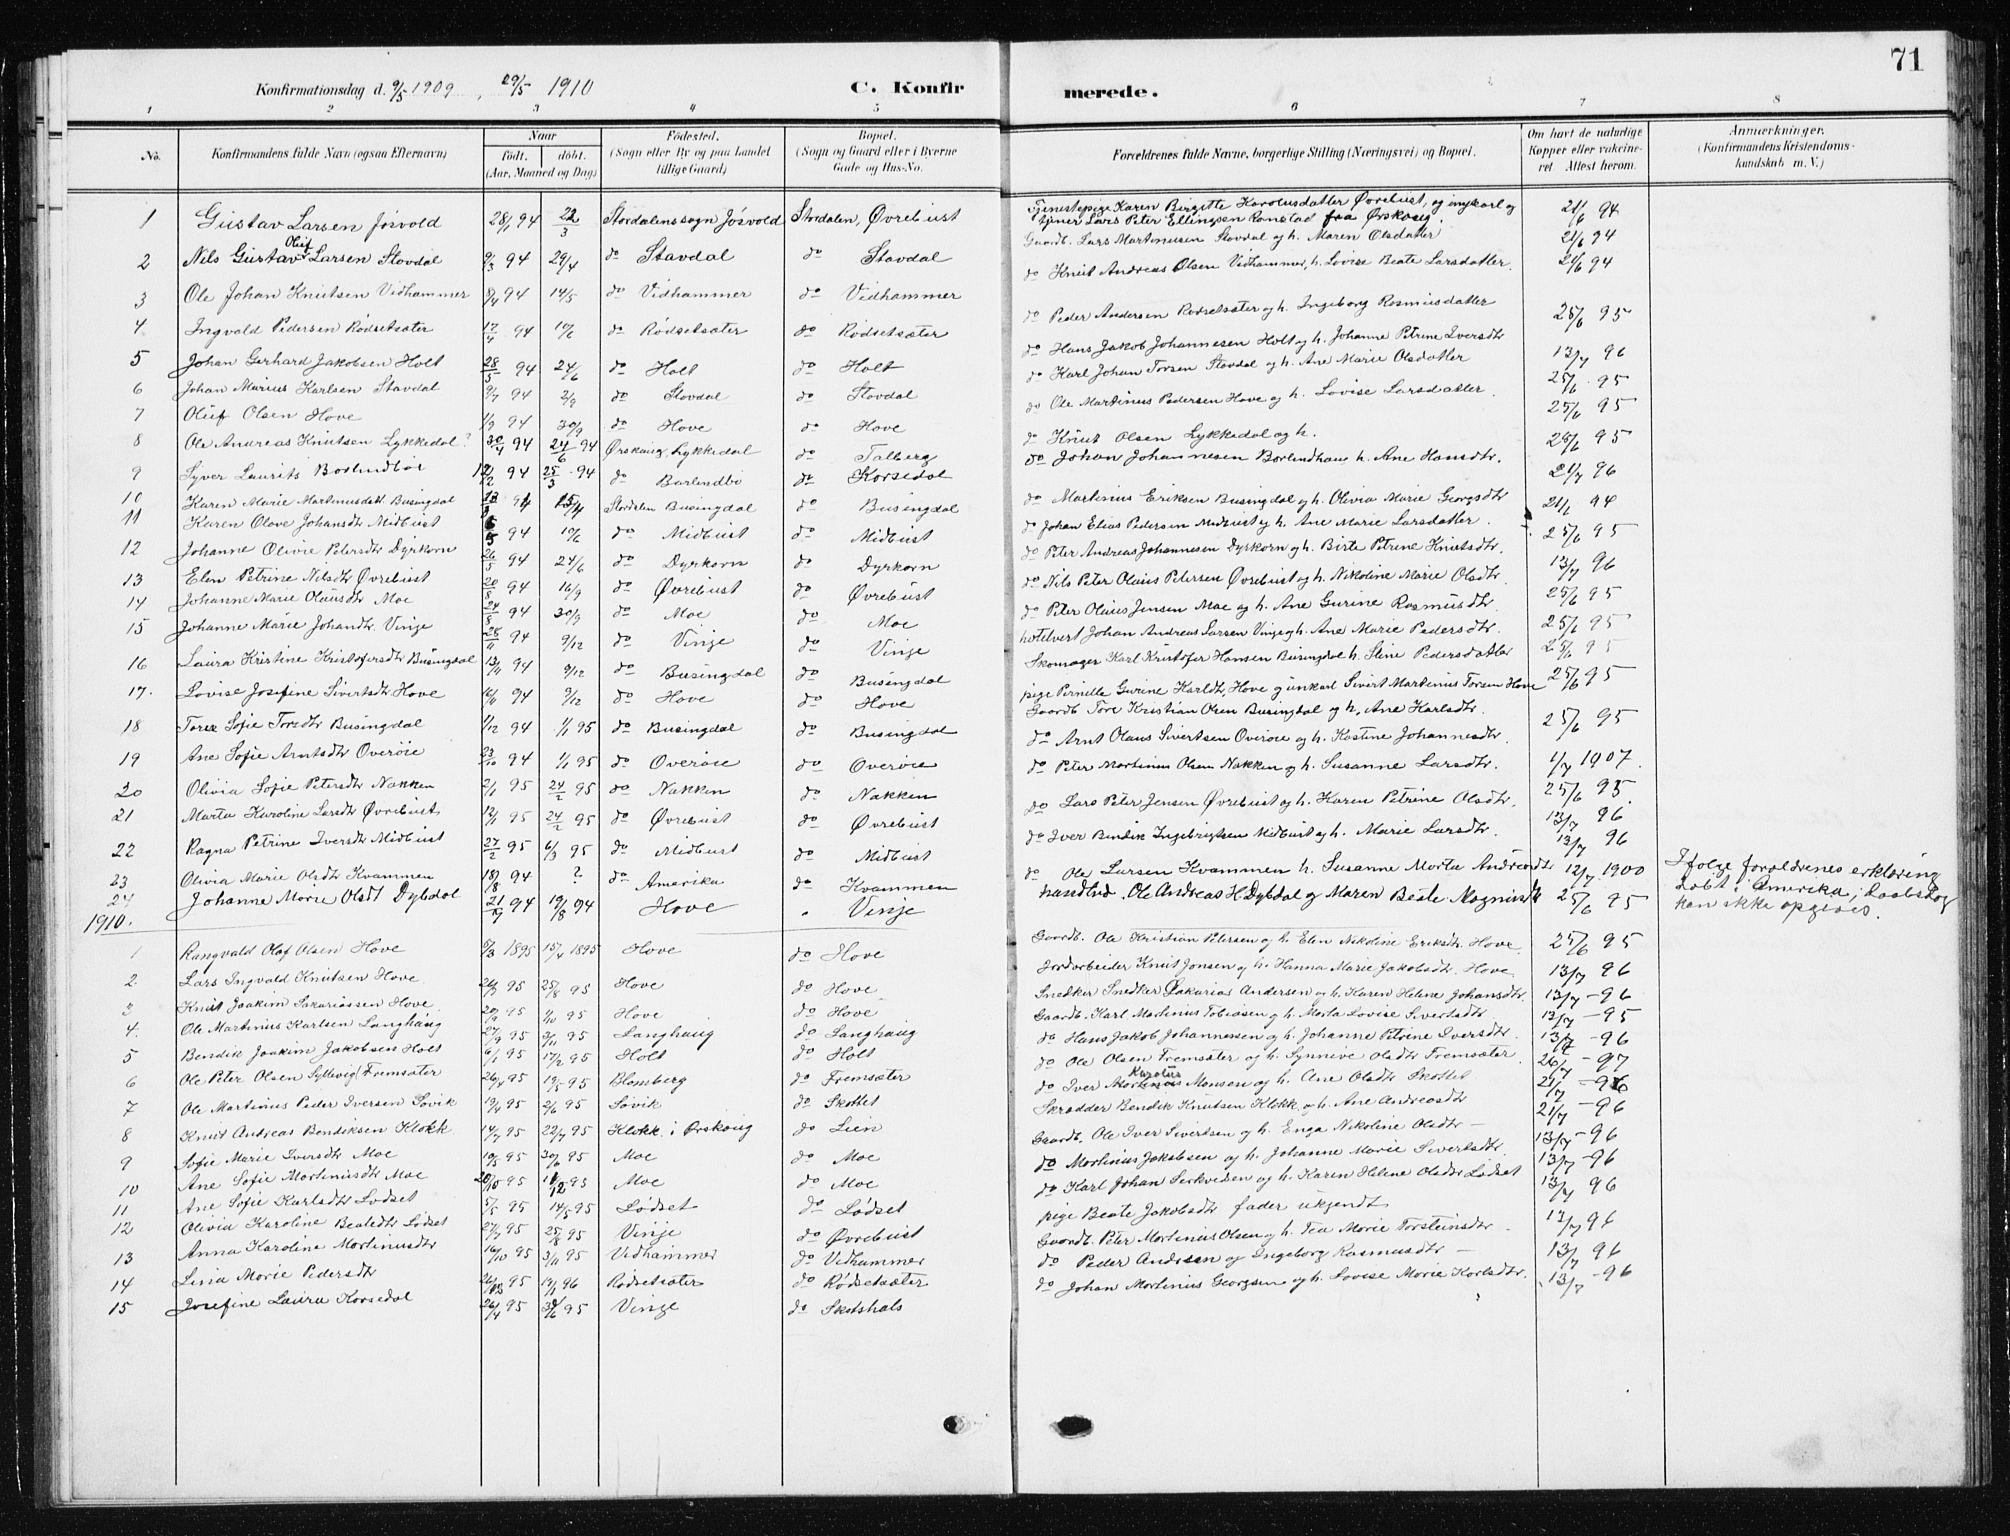 71
Konfirmationsdag d. 9/5 1909, 29/5 1910 C. Konfirmerede.
1 2 3 4 5 6 7 8
No. Konfirmandens fulde Navn (ogsaa Efternavn) Naar født. døbt. (Aar, Maaned og Dag) Fødested. (Sogn eller By og paa Landet tillige Gaard) Bopæl. (Sogn og Gaard eller i Byerne Gade og Hus-No. Forældrenes fulde Navne, borgerlige Stilling (Næringsvei) og Bopæl. Om havt de naturlige Kopper eller vakcineret. Attest herom. Anmærkninger. (Konfirmandens Kristendomskundskab m. V.)
1 Gustav Larsen Jøsvold 28/1 94 22/3 Stordalens sogn Jøsvold Stordalen, Øvrebust Tjenestepige Karen Birgitte Karolusdatter Øvrebust, og ungkarl og tjener Lars Peter Ellingsen Ramstad fra Ørskoug. 21/6 94
2 Nils Gustav Oluf Larsen Stavdal 9/3 94 29/4 do Stavdal do Stavdal Gaardb. Lars Martinusen Stavdal og h. Maren Olsdatter 21/6 94
3 Ole Johan Knutsen Vidhammer 8/4 94 14/5 do Vidhammer do Vidhammer do Knut Andreas Olsen Vidhammer, h. Lovise Beate Larsdatter. 21/6 94
4 Ingvald Pedersen Rødsetsæter 17/4 94 10/6 do Rødsetsæter do Rødsetsæter do Peder Andersen Rødsetsæter og h. Ingeborg Rasmusdatter 25/6 95
5 Johan Gerhard Jakobsen Holt 28/5 94 24/6 do Holt do Holt do Hans Jakob Johannesen Holt og h. Johanne Petrine Iversdtr 13/7 96
6 Johan Marius Karlsen Stavdal 9/7 94 2/9 do Stavdal do Stavdal do Karl Johan Torsen Stavdal og h. Ane Marie Olsdatter 25/6 95
7 Oluf Olsen Hove 1/9 94 30/9 do Hove do Hove do Ole Martinus Pedersen Hove og h. Lovise Larsdatter. 25/6 95
8 Ole Andreas Knutsen Lykkedal? 30/4 94 24/6 94 Ørskoug, Lykkedal do Talberg do Knut Olsen Lykkedal og h. 25/6 95
9 Syver Laurits Borlindbø 12/2 94 25/3 94 do Barlindbø do Korsedal do Johan Johannesen Borlindhaug h. Ane Hansdtr. 21/7 96
10 Karen Marie Martinusdatt. Busingdal 94 15/4 Stordalen Busingdal do Busingdal do Martinius Eriksen Busingdal og h. Olivia Marie Georgsdtr 21/6 94
11 Karen Olave Johansdtr Midbust 6/5 94 10/6 do Midbust do Midbust do Johan Elias Pedersen Midbust og h. Ane Marie Larsdatter. 25/6 95
12 Johanne Olivie Petersdtr Dyrkorn 26/5 94 24/6 do Dyrkorn do Dyrkorn do Peter Andreas Johannesen Dyrkorn og h. Birte Petrine Knutsdtr. 13/7 96
13 Elen Petrine Nilsdtr Øvrebust 20/8 94 16/9 do Øvrebust do Øvrebust do Nils Peter Olaus Petersen Øvrebust og h. Nikoline Marie Olsdtr. 25/6 95
14 Johanne Marie Olausdtr Moe 24/8 94 30/9 do Moe do Moe do Peter Olaus Jensen Moe og h. Ane Gurine Rasmusdtr. 25/6 95
15 Johanne Marie Johansdtr. Vinje 28/11 94 9/12 do Vinje do Vinje hotelvert Johan Andreas Larsen Vinje og h. Ane Marie Pedersdtr. 25/6 95
16 Laura Kristine Kristofersdtr Busingdal 13/11 94 9/12 do Busingdal do Busingdal Skomager Karl Kristofer Hansen Busingdal h. Stine Pedersdatter 25/6 95
17. Lovise Josefine Sivertsdtr Hove 16/11 94 9/12 do Hove do Hove pige Pernille Gurine Karldtr, Hove og unkarl Sivert Martinius Torsen Hove
18 Torer Sofie Torsdtr Busingdal 1/12 94 1/1 95 do Busingdal do Busingdal Gaardb Tore Kristian Olsen Busingdal og h, Ane Karlsdtr. 25/6 95
19 Ane Sofie Arntsdtr Overøie 23/10 94 1/1 95 do Overøie do Overøie do Arnt Olaus Sivertsen Overøie og h. Kastine Johannesdtr.
20 Olivia Sofie Petersdtr Nakken 2/1 95 24/2 95 do Nakken do Nakken do Peter Martinus Olsen Nakken og h. Susanne Larsdtr. 1/7 1907.
21 Marta Karoline Larsdtr Øvrebust 12/1 95 24/2 95 do Øvrebust do Øvrebust do Lars Peter Jensen Øvrebust og h. Karen Petrine Olsdtr. 25/6 95.
22 Ragna Petrine Iversdtr Midbust 27/2 95 6/3 95 do Midbust do Midbust do Iver Bendik Ingebrigtsen Midbust og h. Marie Larsdtr. 13/7 96
23 Olivia Marie Olsdtr Kvammen 18/8 94 ? do Amerika do Kvammen do Ole Larsen Kvammen h. Susanne Marta Andreasdtr 12/7 1900 Ifølge forældrenes erklæring døbt i Amerika; daabsdag kan ikke opgives.
24 Johanne Marie Olsdt Dybdal 21/7 94 19/8 94 Hove " Vinje handlbd. Ole Andreas H. Dybdal og Maren Beate Magnusdtr 25/6 95
1910.
1 Rangvald Olaf Olsen Hove 9/3 1895 15/4 1895 Hove do Hove Gaardb. Ole Kristian Petersen og h. Elen Nikoline Eriksdtr. Hove 25/6 95
2 Lars Ingvald Knutsen Hove 95 25/8 95 Hove do Hove Jordarbeider Knut Jonsen og h. Hanna Marie Jakobsdtr. Hove 13/7 96
3 Knut Joakim Sakariassen Hove 20/9 95 1/10 95 Hove do Hove Snedker Snedker Sakarias Andersen og h. Karen Helene Johansdtr. 13/7 - 96
4. Ole Martinius Karlsen Langhaug 27/9 95 3/11 95 Langhaug do Langhaug Gaardb. Karl Martinus Tobiasen og h. Marta Lovise Sivertsdtr 13/7 - 95
5 Bendik Joakim Jakobsen Holt 6/1 95 17/2 95 Holt do Holt do Hans Jakob Johannessen og h. Johanne Petrine Iversdtr. 13/7 - 96
6 Ole Peter Olsen Syllevig (Fremsæter 26/4 95 19/5 95 Blomberg do Fremsæter do Ole Olsen Fremsæter og h. Synnive Olsdtr Fremsæter. 26/6 - 97
7 Ole Martinus Peder Iversen Søvik 19/4 95 2/6 95 Søvik do Skottet do Iver Martinus Karolus Monsen og h. Ane Olsdtr Skottet 21/7 - 96
8 Knut Andreas Bendiksen Klokk 14/7 95 22/7 95 Klokk i Ørskoug do Lien Skrædder Bendik Knutsen Klokk, og h. Ane Andreasdtr 21/7 - 96
9 Sofie Marie Iversdtr Moe 19/5 95 30/6 95 Moe do Moe Gaardb. Ole Iver Sivertsen og h. Enga Nikoline Olsdtr - 13/7 - 96
10 Ane Sofie Martinusdtr Moe 20/10 95 1/12 95 Moe do Moe do Martinus Jakobsen og h. Johanne Marie Sivertsdtr. 13/7 - 96
11 Ane Sofie Karlsdtr Lødset 5/5 95 14/5 95 Lødset do Lødset do Karl Johan Serkvedsen og h. Karen Helene Olsdtr Lødset 13/7 96
12 Olivia Karoline Beatedtr Lødset 27/7 95 25/8 95 Vinje do Øvrebust pige Beate Jakobsdtr fader ukjendt 13/7 96
13 Anna Karoline Martinusdtr 16/10 95 3/11 95 Vidhammer do Vidhammer Gaardb. Peter Martinus Olsen og h. Tea Marie Torsteinsdtr. 13/7 96
14 Lina Marie Pedersdtr 95 19/1 96 Rødsetsæter do Rødsetsæter do Peder Andersen og Ingeborg Rasmusdtr -
15 Josefine Laura Korsedal 26/4 95 3/6 95 Vinje do Skotshals do Johan Martinus Georgsen og h. Lovise Marie Karlsdtr. 13/7 - 96